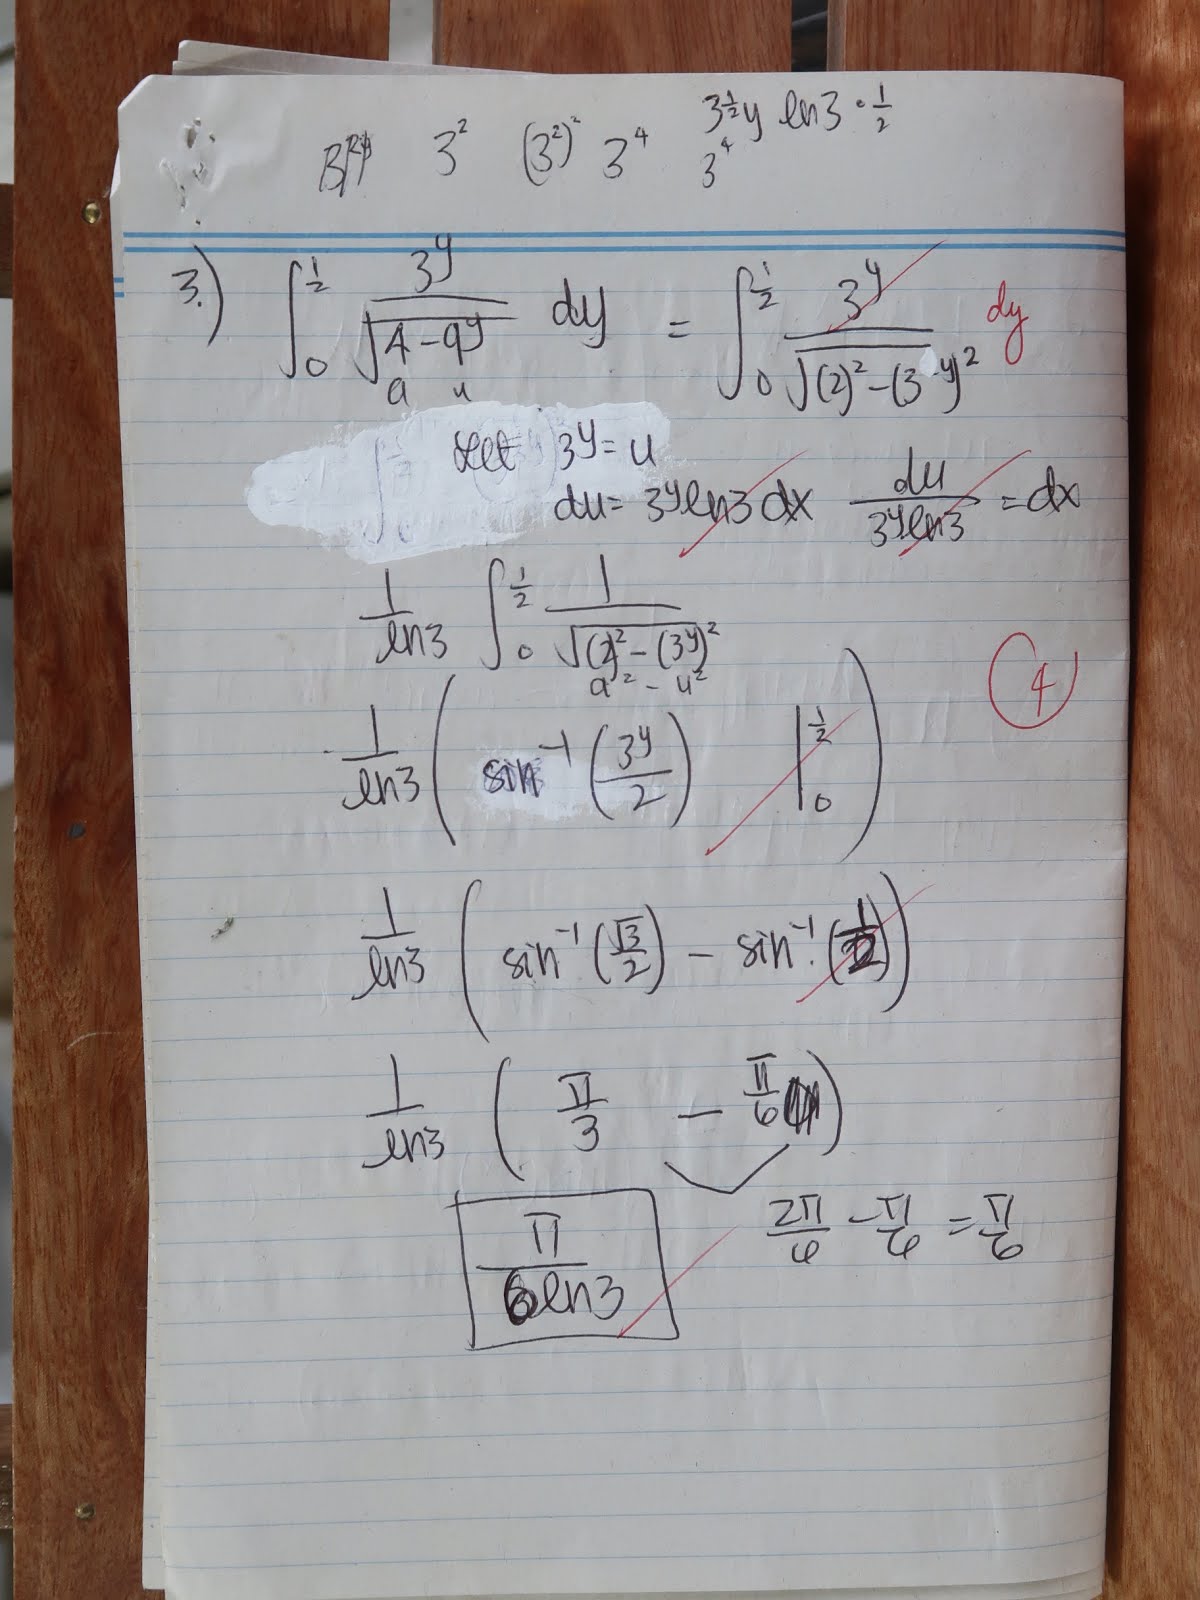 3² (3²)² 3⁴ 3^½y ln3 · ½
3⁴
3.) ∫₀^½ 3^y/√(4-9^y) dy = ∫₀^½ 3^y/√((2)²-(3^y)²) dy
a u
let 3^y = u
du = 3^y ln3 dx du/(3^y ln3) = dx
1/ln3 ∫₀^½ 1/√((2)²-(3^y)²)
a² - u²
4
1/ln3 ( sin⁻¹ (3^y/2) |₀^½ )
1/ln3 ( sin⁻¹ (√3/2) - sin⁻¹ (1/2) )
1/ln3 ( π/3 - π/6 )
π/(6ln3) 2π/6 - π/6 = π/6